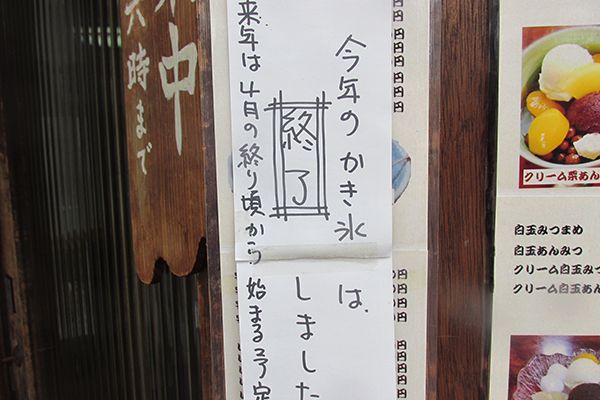 今年のかき氷は、
終了
しました
来年は4月の終り頃から始まる予定
中
六時まで
クリーム栗あん
白玉みつまめ
白玉あんみつ
クリーム白玉みつ
クリーム白玉あん